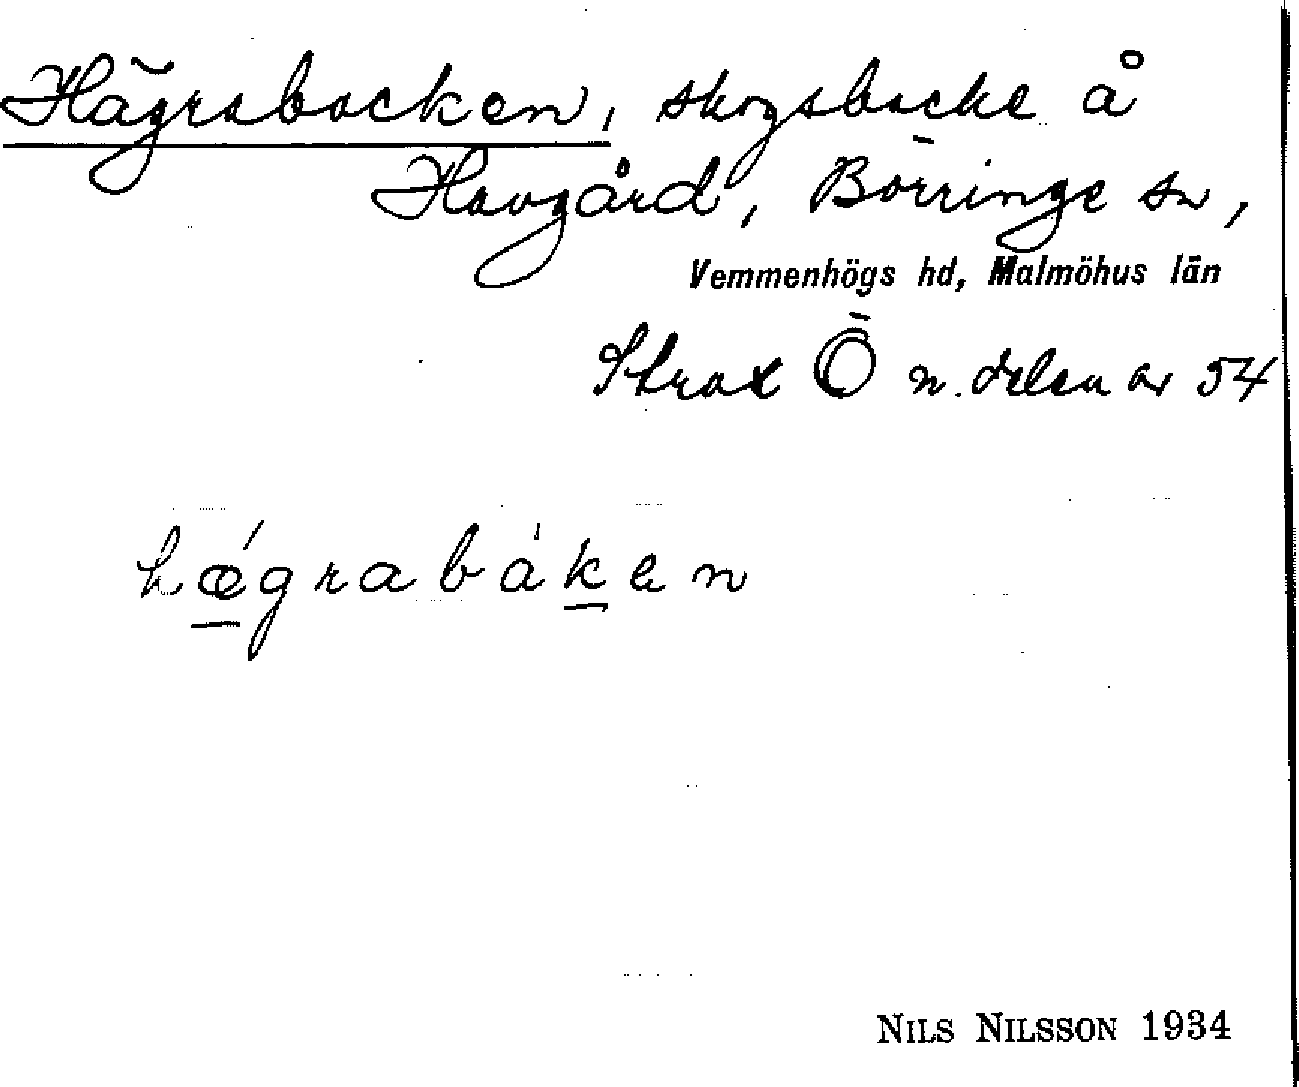 Hägrabacken, skogsbacke å
Havgård, Börringe sn,
Vemmenhögs hd, Malmöhus län
Strax Ö n. delen av 54
hǽgrabàken
NILS NILSSON 1934